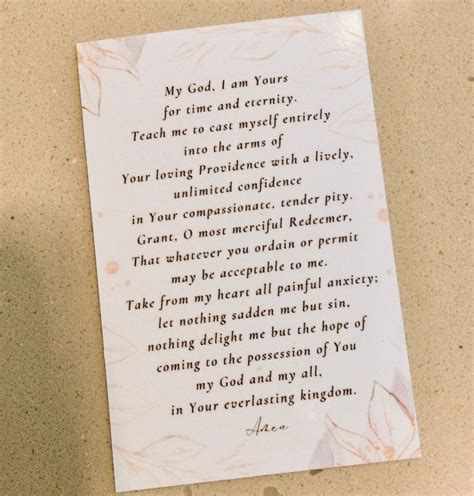 My God, I am Yours
for time and eternity.
Teach me to cast myself entirely
into the arms of
Your loving Providence with a lively,
unlimited confidence
in Your compassionate, tender pity.
Grant, O most merciful Redeemer,
That whatever you ordain or permit
may be acceptable to me.
Take from my heart all painful anxiety;
let nothing sadden me but sin,
nothing delight me but the hope of
coming to the possession of You
my God and my all,
in Your everlasting kingdom.
Amen